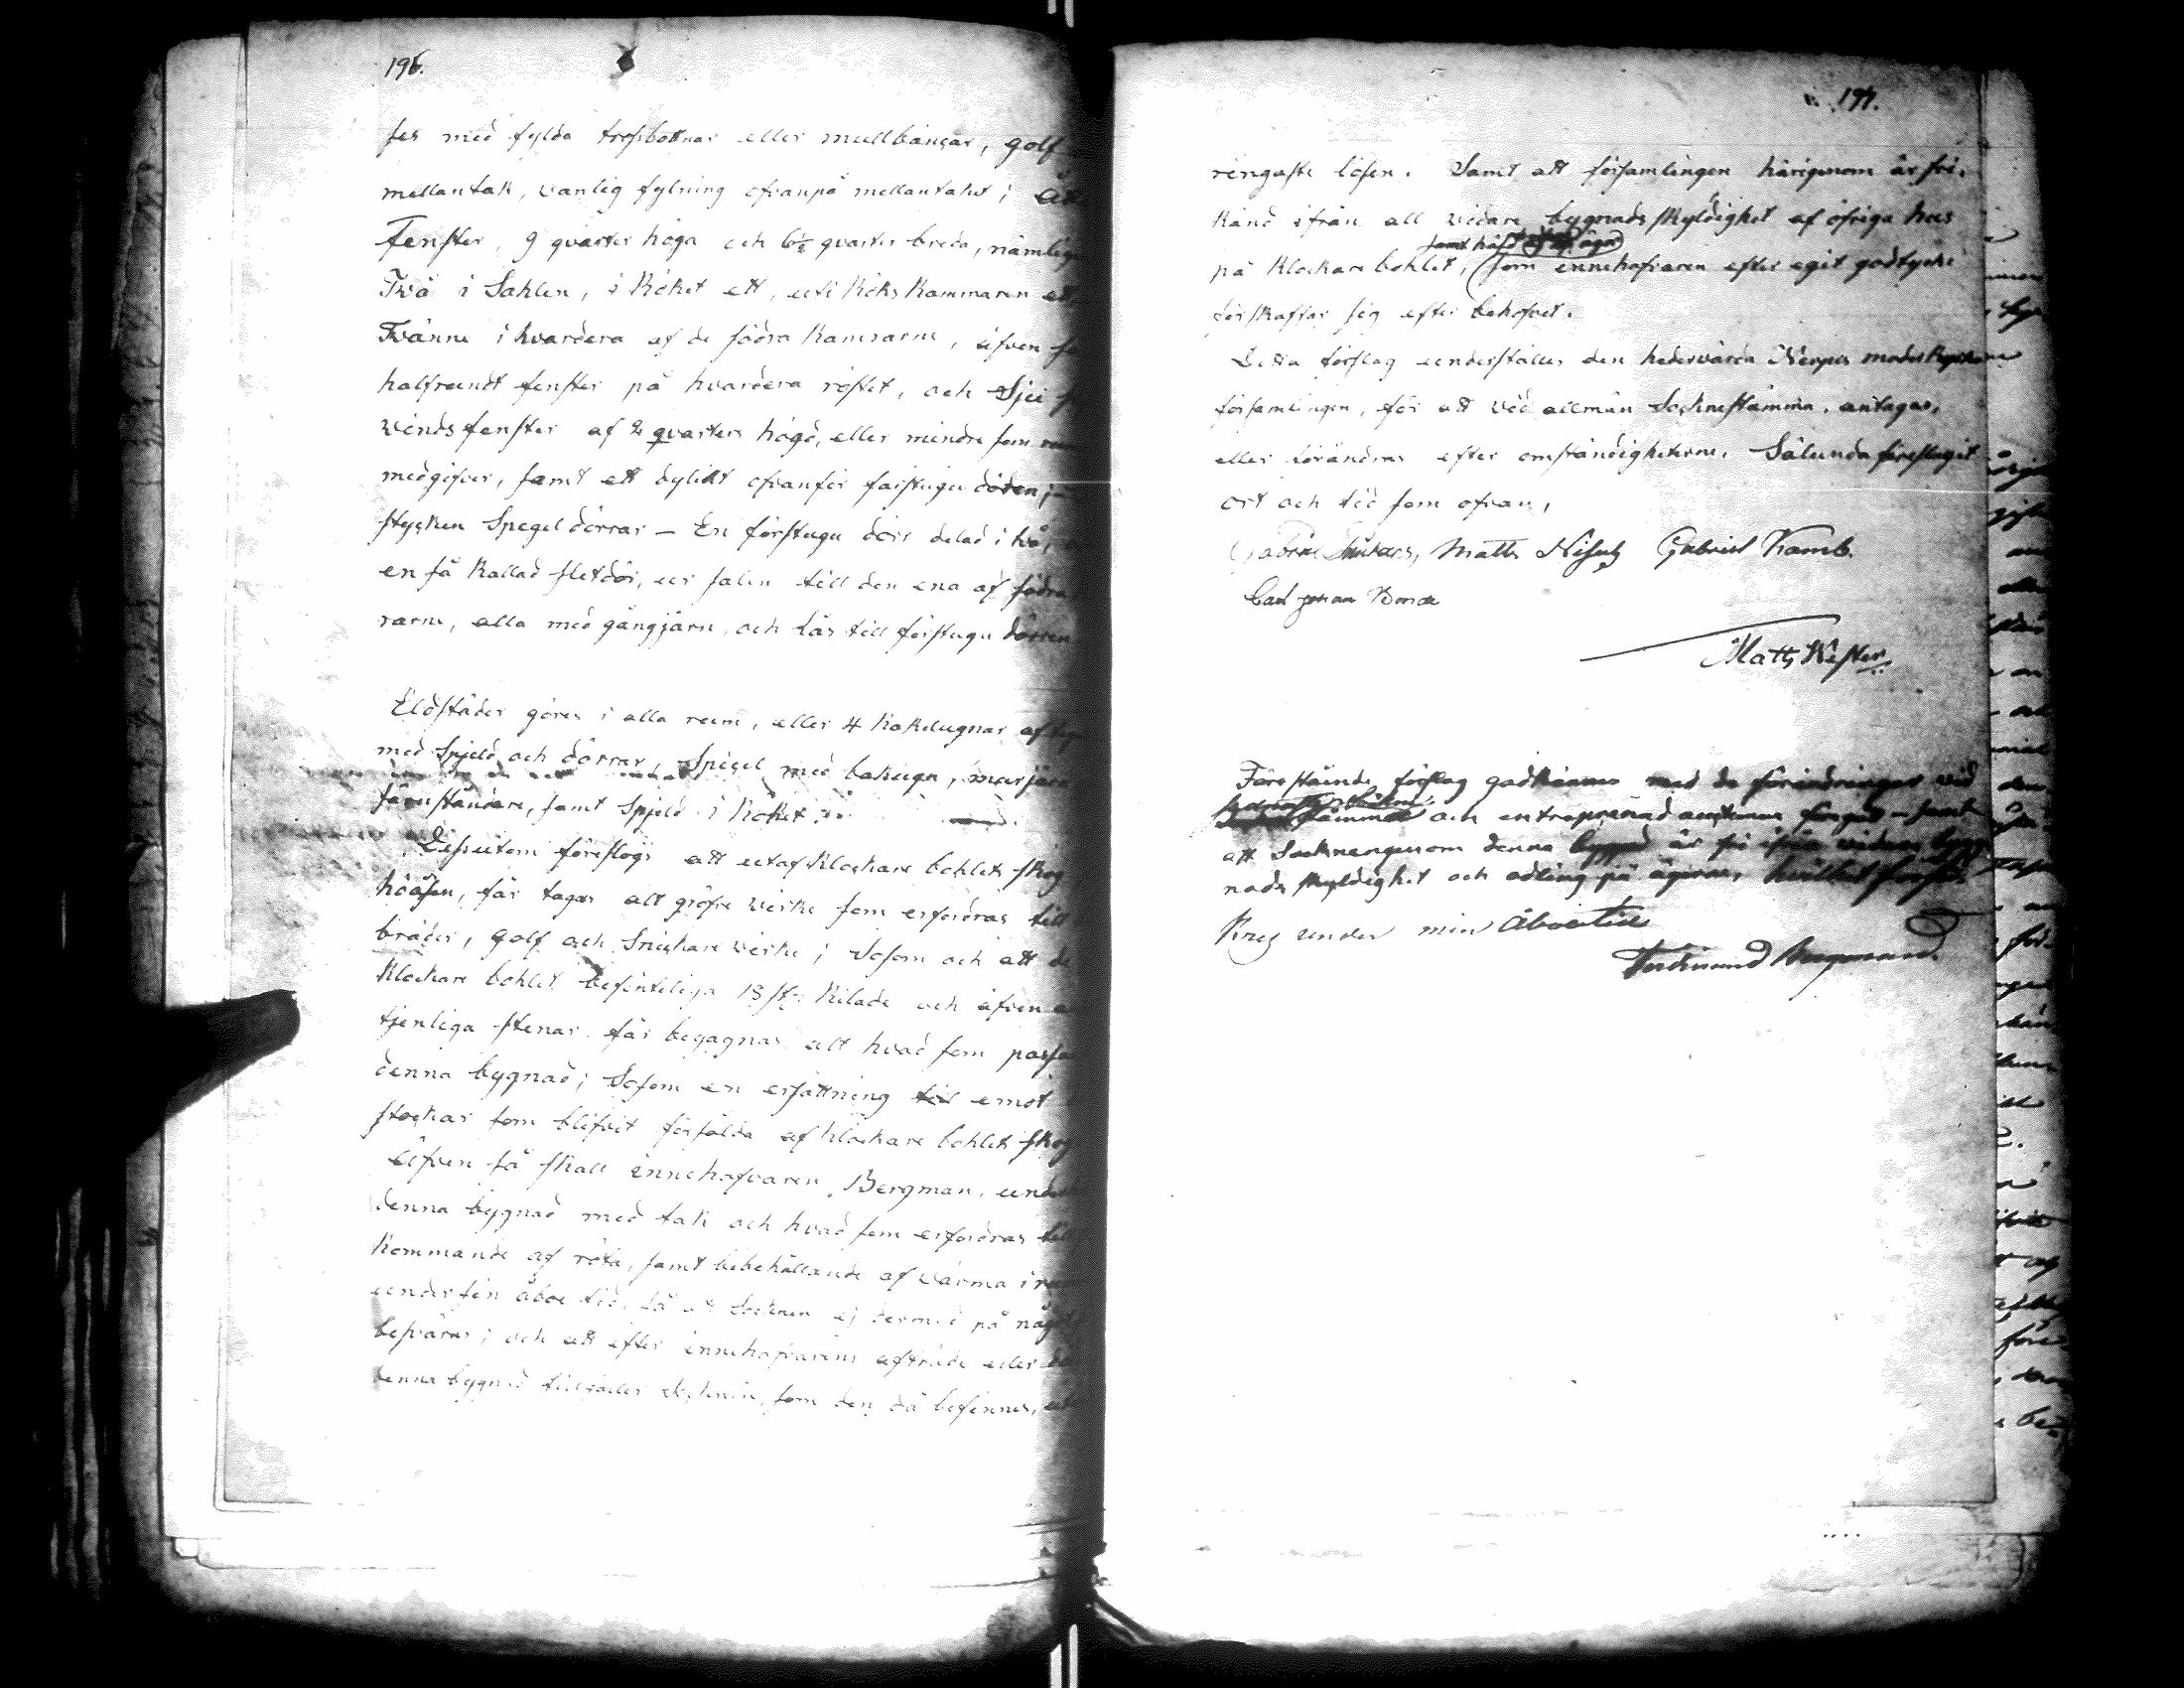 196.
ses med fylda trossbottnar eller mullbänkar, golf
mellantak, vanlig fylning ofvanpå mellantaket;
Fenster, 9 qvarter höga och 6½ qvarter breda, nämlige
Två i Sahlen, i Köket ett, uti Köks Kammaren ett
Tvänne i hvardera af de södra Kamrarne, äfven
halfrundt fenster på hvardera röstet, och Sju
vindsfenster af 2 qvarters högd, eller mindre som
medgifver, samt ett dylikt ofvanför farstugu dören;
stycken Spegel dörrar — En förstugu dörr delad i två,
en så Kallad sletdör, ur salen till den ena af södra
rarne, alla med gångjärn, och lås till förstugu dörren
Eldstäder göres i alla rum, eller 4 Kakelugnar af
med Spjeld och dörrar, Spisel med bakugn, murjärn
järnständare, samt Spjeld i Köket
Dessutom föreslogs att utaf Klockare bohlets skog
får tagas allt gröfre virke som erfordras till
bräder, golf och Snickare virke; Såsom och att de
Klockare bohlet befinteliga 13 st: Kilade och äfven
tjenliga stenar får begagnas allt hvad som passa
denna bygnad; Såsom en ersättning emot
stockar som blifvit försålda af Klockare bohlets skog
Äfven så skall innehafvaren, Bergman, und
denna bygnad med tak och hvad som erfordras till
Kommande af röta, samt bibehållande af värma i
under sin åboe tid, så att Socknen ej dermed på något
besväras; och att efter innehafvarens afträde eller
denna bygnad tillfaller Socknen, som den då befinnes,
197.
ringaste lösen. Samt att församlingen härigenom är fri-
känd ifrån all vidare bygnads skyldighet af öfriga hus
på Klockare bohlet, som innehafvaren efter egit godtycke
förskaffar sig efter behofvet.
Detta förslag underställes den hedervärda Nerpes moderkyrko
församlingen, för att vid allmän Socknestämma, antagas,
eller förändras efter omständigheterne. Sålunda föreslagit
ort och tid som ofvan,
Matts Gabriel
Carl Johan
Matts
Förestående förslag godkännes med de förändringar vid
och entreprenad auctionen – samt
att Socknen genom denna byggnad är fri ifrån vidare bygg
nads skyldighet och odling på ägorne, hvilket
under min Åboetid
Ferdinand Bergman.